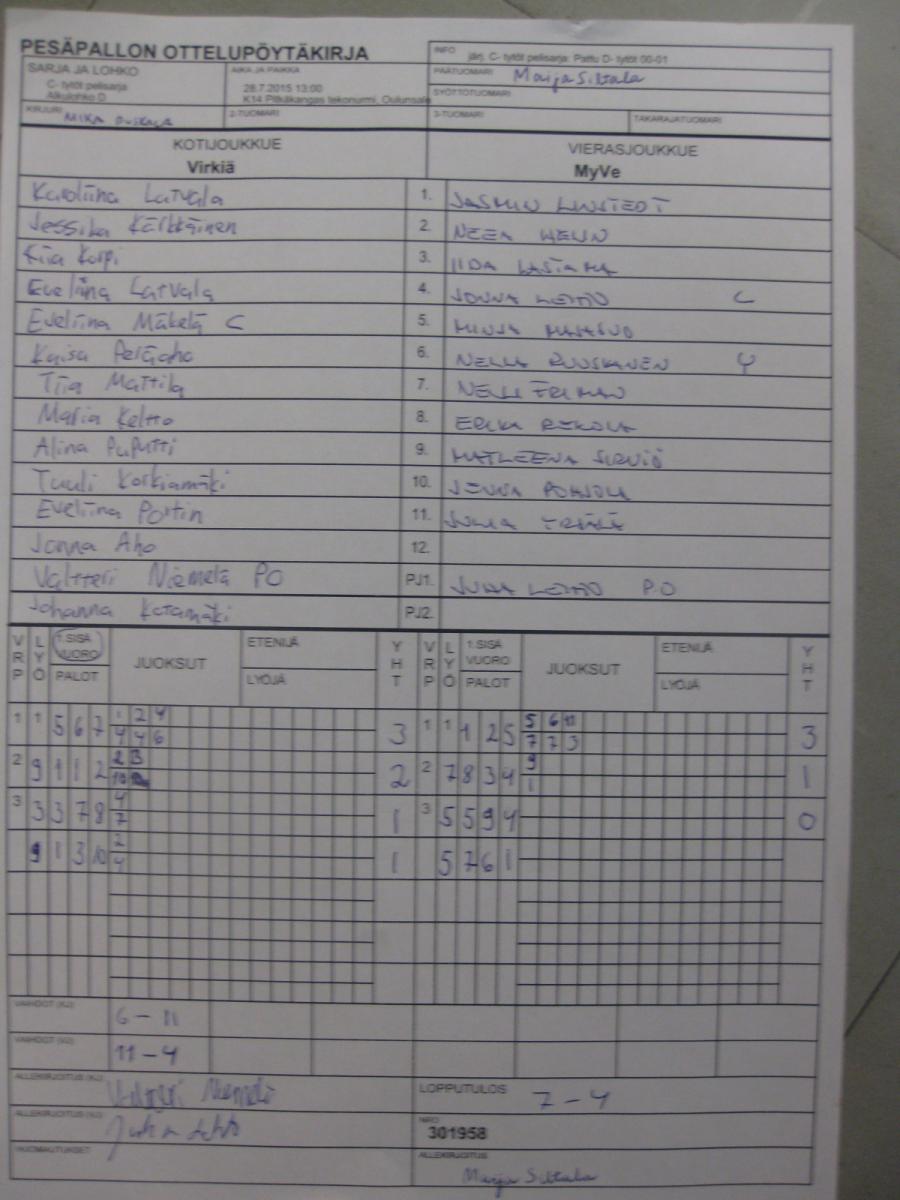 PESÄPALLON OTTELUPÖYTÄKIRJA
INFO järj. C- tytöt pelisarja: Pattu D- tytöt 00-01
SARJA JA LOHKO
C- tytöt pelisarja
Alkulohko D
AIKA JA PAIKKA
28.7.2015 13:00
K14 Pitkäkangas tekonurmi, Oulunsalo
PÄÄTUOMARI Marja Siltala
SYÖTTÖTUOMARI
KIRJURI MIKA
2-TUOMARI
3-TUOMARI
TAKARAJATUOMARI
KOTIJOUKKUE
Virkiä
VIERASJOUKKUE
MyVe
Karoliina Latvala 1. JASMIN LINSTEDT
Jessika Kärkkäinen 2. NEEA HELIN
Kiia Korpi 3. IIDA
Eveliina Latvala 4. JONNA LEHTO C
Eveliina Mäkelä C 5. MINJA
Kaisa Peräaho 6. NELLA RUUSKANEN
Tiia Mattila 7. NELLI
Maria Keltto 8. ERIKA REKOLA
Alina Puputti 9. MATLEENA SIRVIÖ
Tuuli Korkiamäki 10. JENNA POHJOLA
Eveliina Portin 11. JULIA
Jonna Aho 12.
Valtteri Niemelä PO PJ1. JUHA LEHTO P.O
Johanna Katamäki PJ2.
VRP LYÖ 1.SISÄ VUORO PALOT JUOKSUT ETENIJÄ LYÖJÄ YHT VRP LYÖ 1.SISÄ VUORO PALOT JUOKSUT ETENIJÄ LYÖJÄ YHT
1 1 5 6 7 1 2 4 3 1 1 1 2 5 5 6 11 3
4 4 6 7 7 3
2 9 1 1 2 2 3 2 2 7 8 3 4 9 1
10 1
3 3 3 7 8 4 1 3 5 5 9 4 0
7
9 1 3 10 2 1 5 7 6 1
4
VAIHDOT (KJ) 6 - 11
VAIHDOT (VJ) 11 - 4
ALLEKIRJOITUS (KJ) Valtteri Niemelä
LOPPUTULOS 7 - 4
ALLEKIRJOITUS (VJ) Juha Lehto
NRO
301958
HUOMAUTUKSET
ALLEKIRJOITUS
Marja Siltala